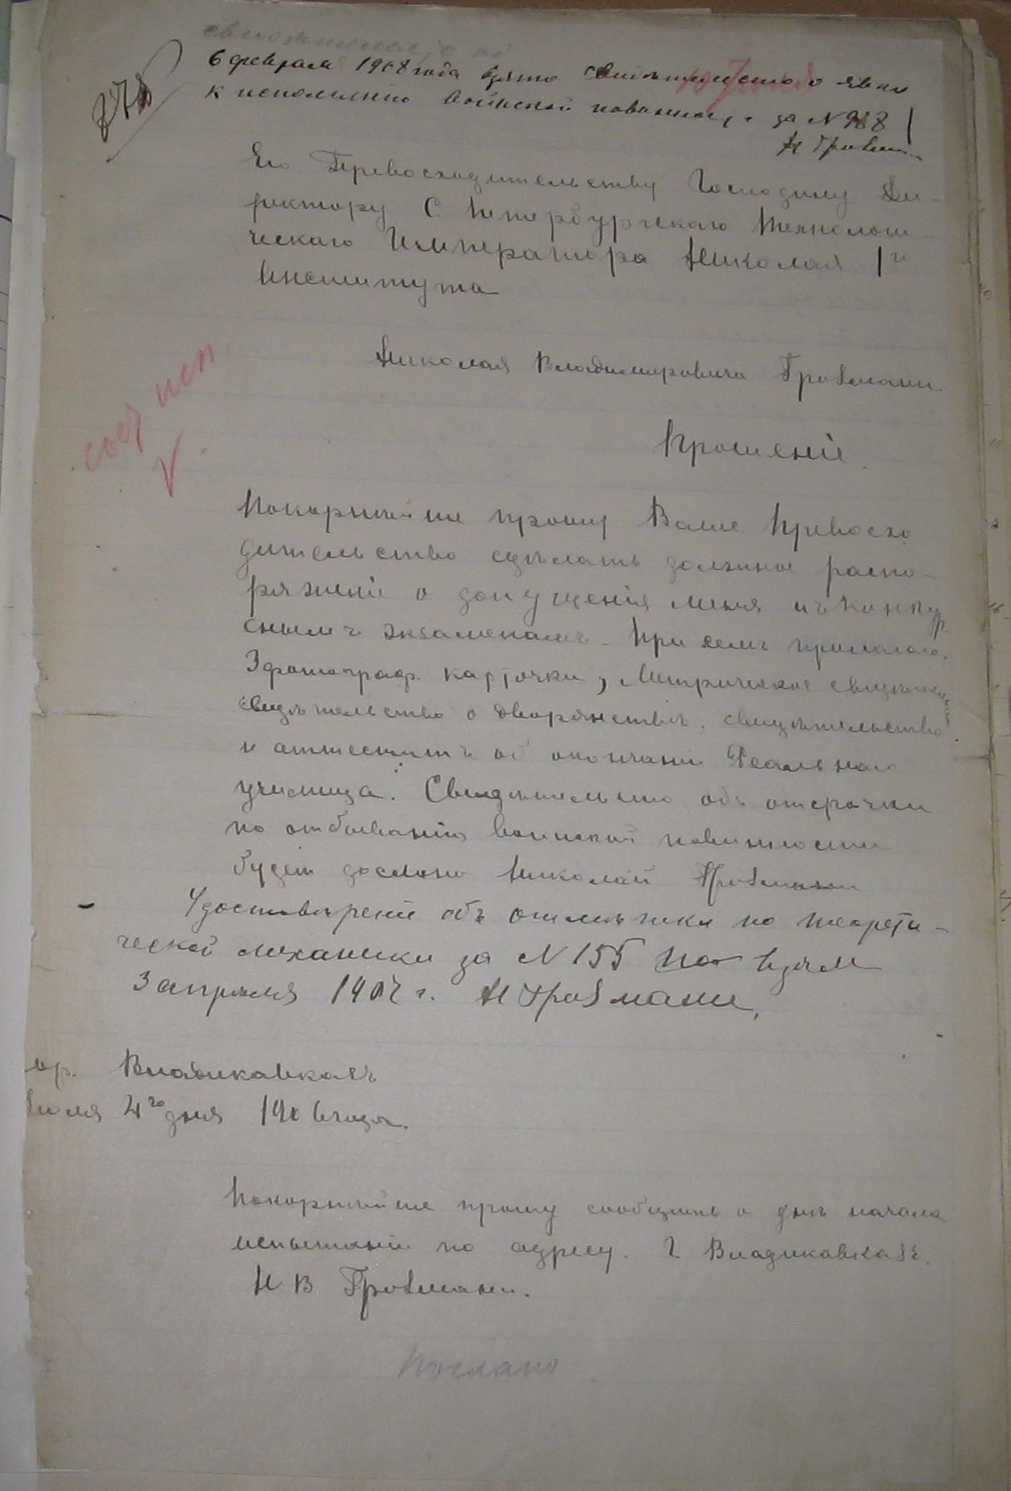 6 февраля 1908 года взято свидѣтельство о явкѣ
к исполненію воинской повинност, за N 988
Его Превосходительству Господину Ди-
ректору С Петербургскаго Технологи-
ческаго Императора Николая I го
Института
Николая Владимировича Гробмани
Прошеніе
Покорнѣйше прошу Ваше Превосхо
дительство сдѣлать должное распо-
ряженіе о допущенія меня къ конкур
снымъ экзаменамъ. При семъ прилагаю
3 фотограф. карточки, Метрическое
свидѣтельство о дворянствѣ, свидѣтельство
и аттестатъ об окончаніи Реальнаго
училища. Свидѣтельство объ отсрочки
по отбыванію воинской повинности
будет дослано Николай Гробмани
Удостовѣреніе объ отмѣтки по теорети-
ческой механики за N 155 взял
3 апрѣля 1907 г. Н Гробмани,
гор. Владикавказъ
Іюля 4го дня 1906 года.
Покорнѣйше прошу сообщить о днѣ начала
испытаній по адресу. Г. Владикавказъ.
Н В Гробмани.
Послано